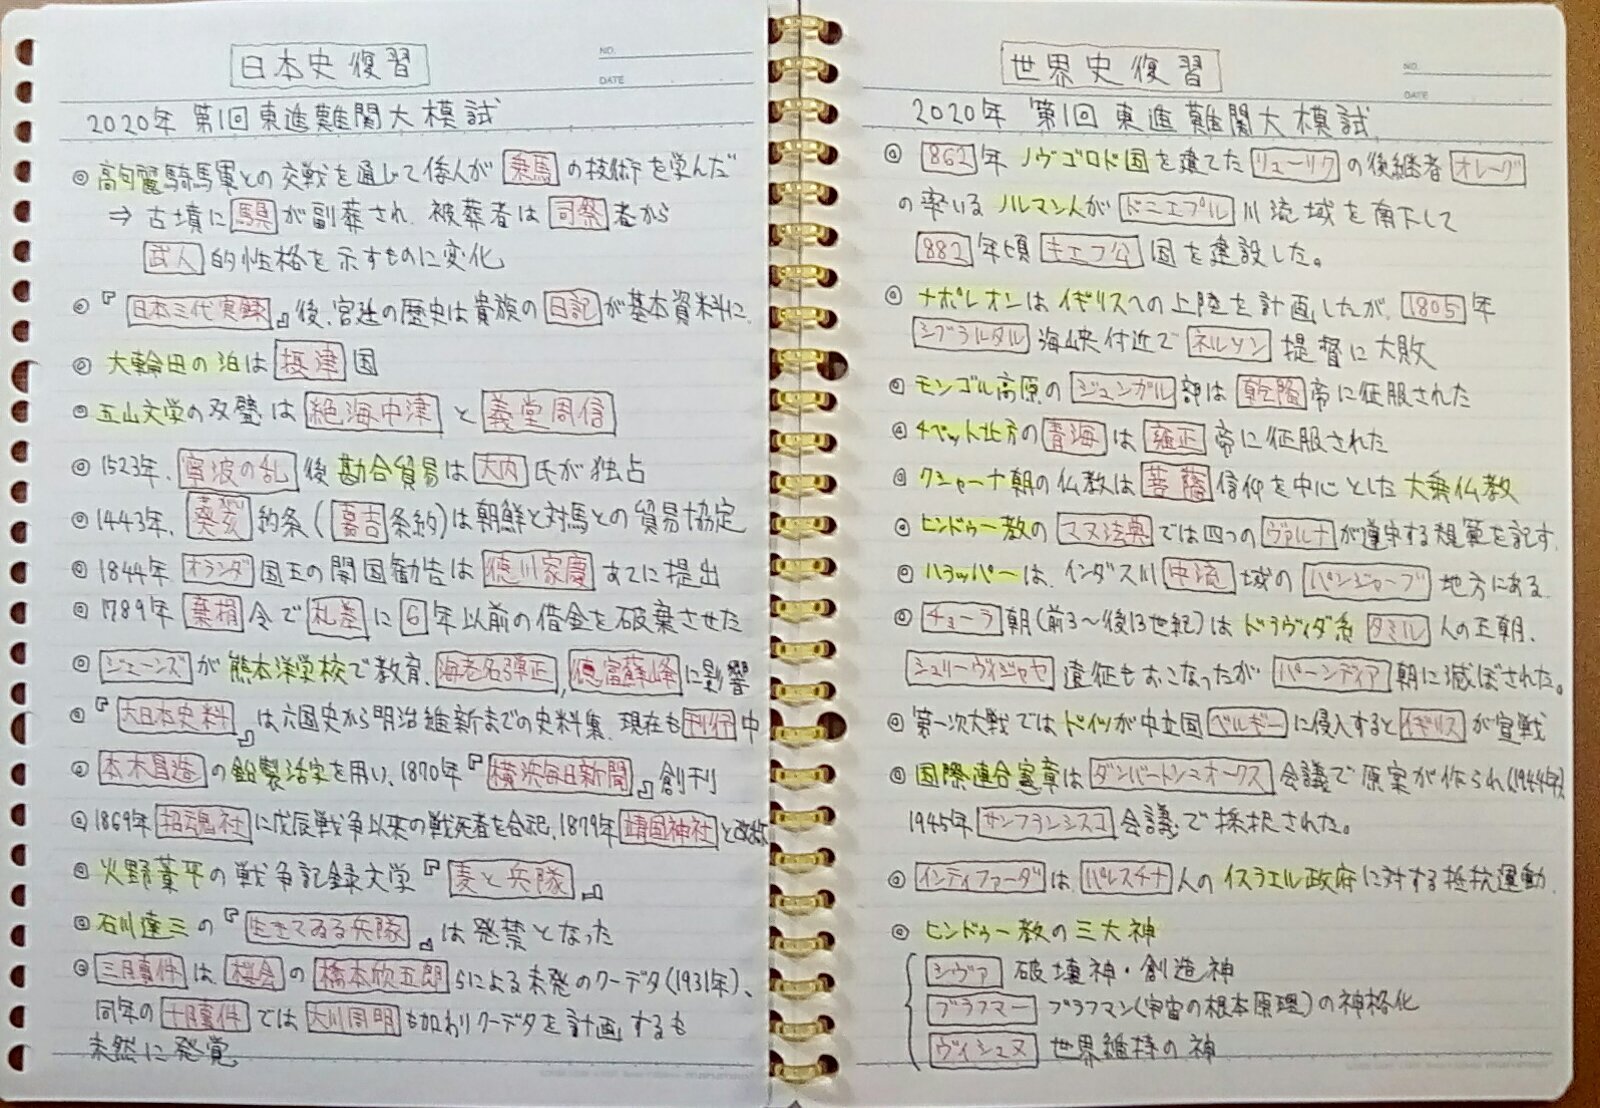 日本史復習
NO.
DATE
2020年 第1回東進難関大模試
◎高句麗騎馬軍との交戦を通じて倭人が乗馬の技術を学んだ
⇒ 古墳に馬具が副葬され、被葬者は司祭者から
武人的性格を示すものに変化
◎『日本三代実録』後、宮廷の歴史は貴族の日記が基本資料に
◎ 大輪田の泊は摂津国
◎ 五山文学の双璧は絶海中津と義堂周信
◎1523年、寧波の乱後勘合貿易は大内氏が独占
◎1443年、癸亥約条(嘉吉条約)は朝鮮と対馬との貿易協定
◎1844年オランダ国王の開国勧告は徳川家慶あてに提出
◎1789年棄捐令で札差に6年以前の借金を破棄させた
◎ジェーンズが熊本洋学校で教育、海老名弾正,徳富蘇峰に影響
◎『大日本史料』は六国史から明治維新までの史料集、現在も刊行中
◎本木昌造の鉛製活字を用い、1870年『横浜毎日新聞』創刊
◎1869年招魂社に戊辰戦争以来の戦死者を合祀、1879年靖国神社と改称
◎火野葦平の戦争記録文学『麦と兵隊』
◎石川達三の『生きてゐる兵隊』は発禁となった
◎三月事件は、桜会の橋本欣五郎らによる未発のクーデタ(1931年)、
同年の十月事件では大川周明も加わりクーデタを計画するも
未然に発覚
世界史復習
NO.
DATE
2020年 第1回東進難関大模試
◎862年ノヴゴロド国を建てたリューリクの後継者オレーグ
の率いるノルマン人がドニエプル川流域を南下して
882年頃キエフ公国を建設した。
◎ナポレオンはイギリスへの上陸を計画したが、1805年
ジブラルタル海峡付近でネルソン提督に大敗
◎モンゴル高原のジュンガル部は乾隆帝に征服された
◎チベット北方の青海は雍正帝に征服された
◎クシャーナ朝の仏教は菩薩信仰を中心とした大乗仏教
◎ヒンドゥー教のマヌ法典では四つのヴァルナが遵守する規範を記す。
◎ハラッパーは、インダス川中流域のパンジャーブ地方にある
◎チョーラ朝(前3〜後13世紀)はドラヴィダ系タミル人の王朝、
シュリーヴィジャヤ遠征もおこなったがパーンディア朝に滅ぼされた。
◎第一次大戦ではドイツが中立国ベルギーに侵入するとイギリスが宣戦
◎国際連合憲章はダンバートン=オークス会議で原案が作られ(1944年)
1945年サンフランシスコ会議で採択された。
◎インティファーダは、パレスチナ人のイスラエル政府に対する抵抗運動
◎ヒンドゥー教の三大神
シヴァ 破壊神・創造神
ブラフマー ブラフマン(宇宙の根本原理)の神格化
ヴィシュヌ 世界維持の神